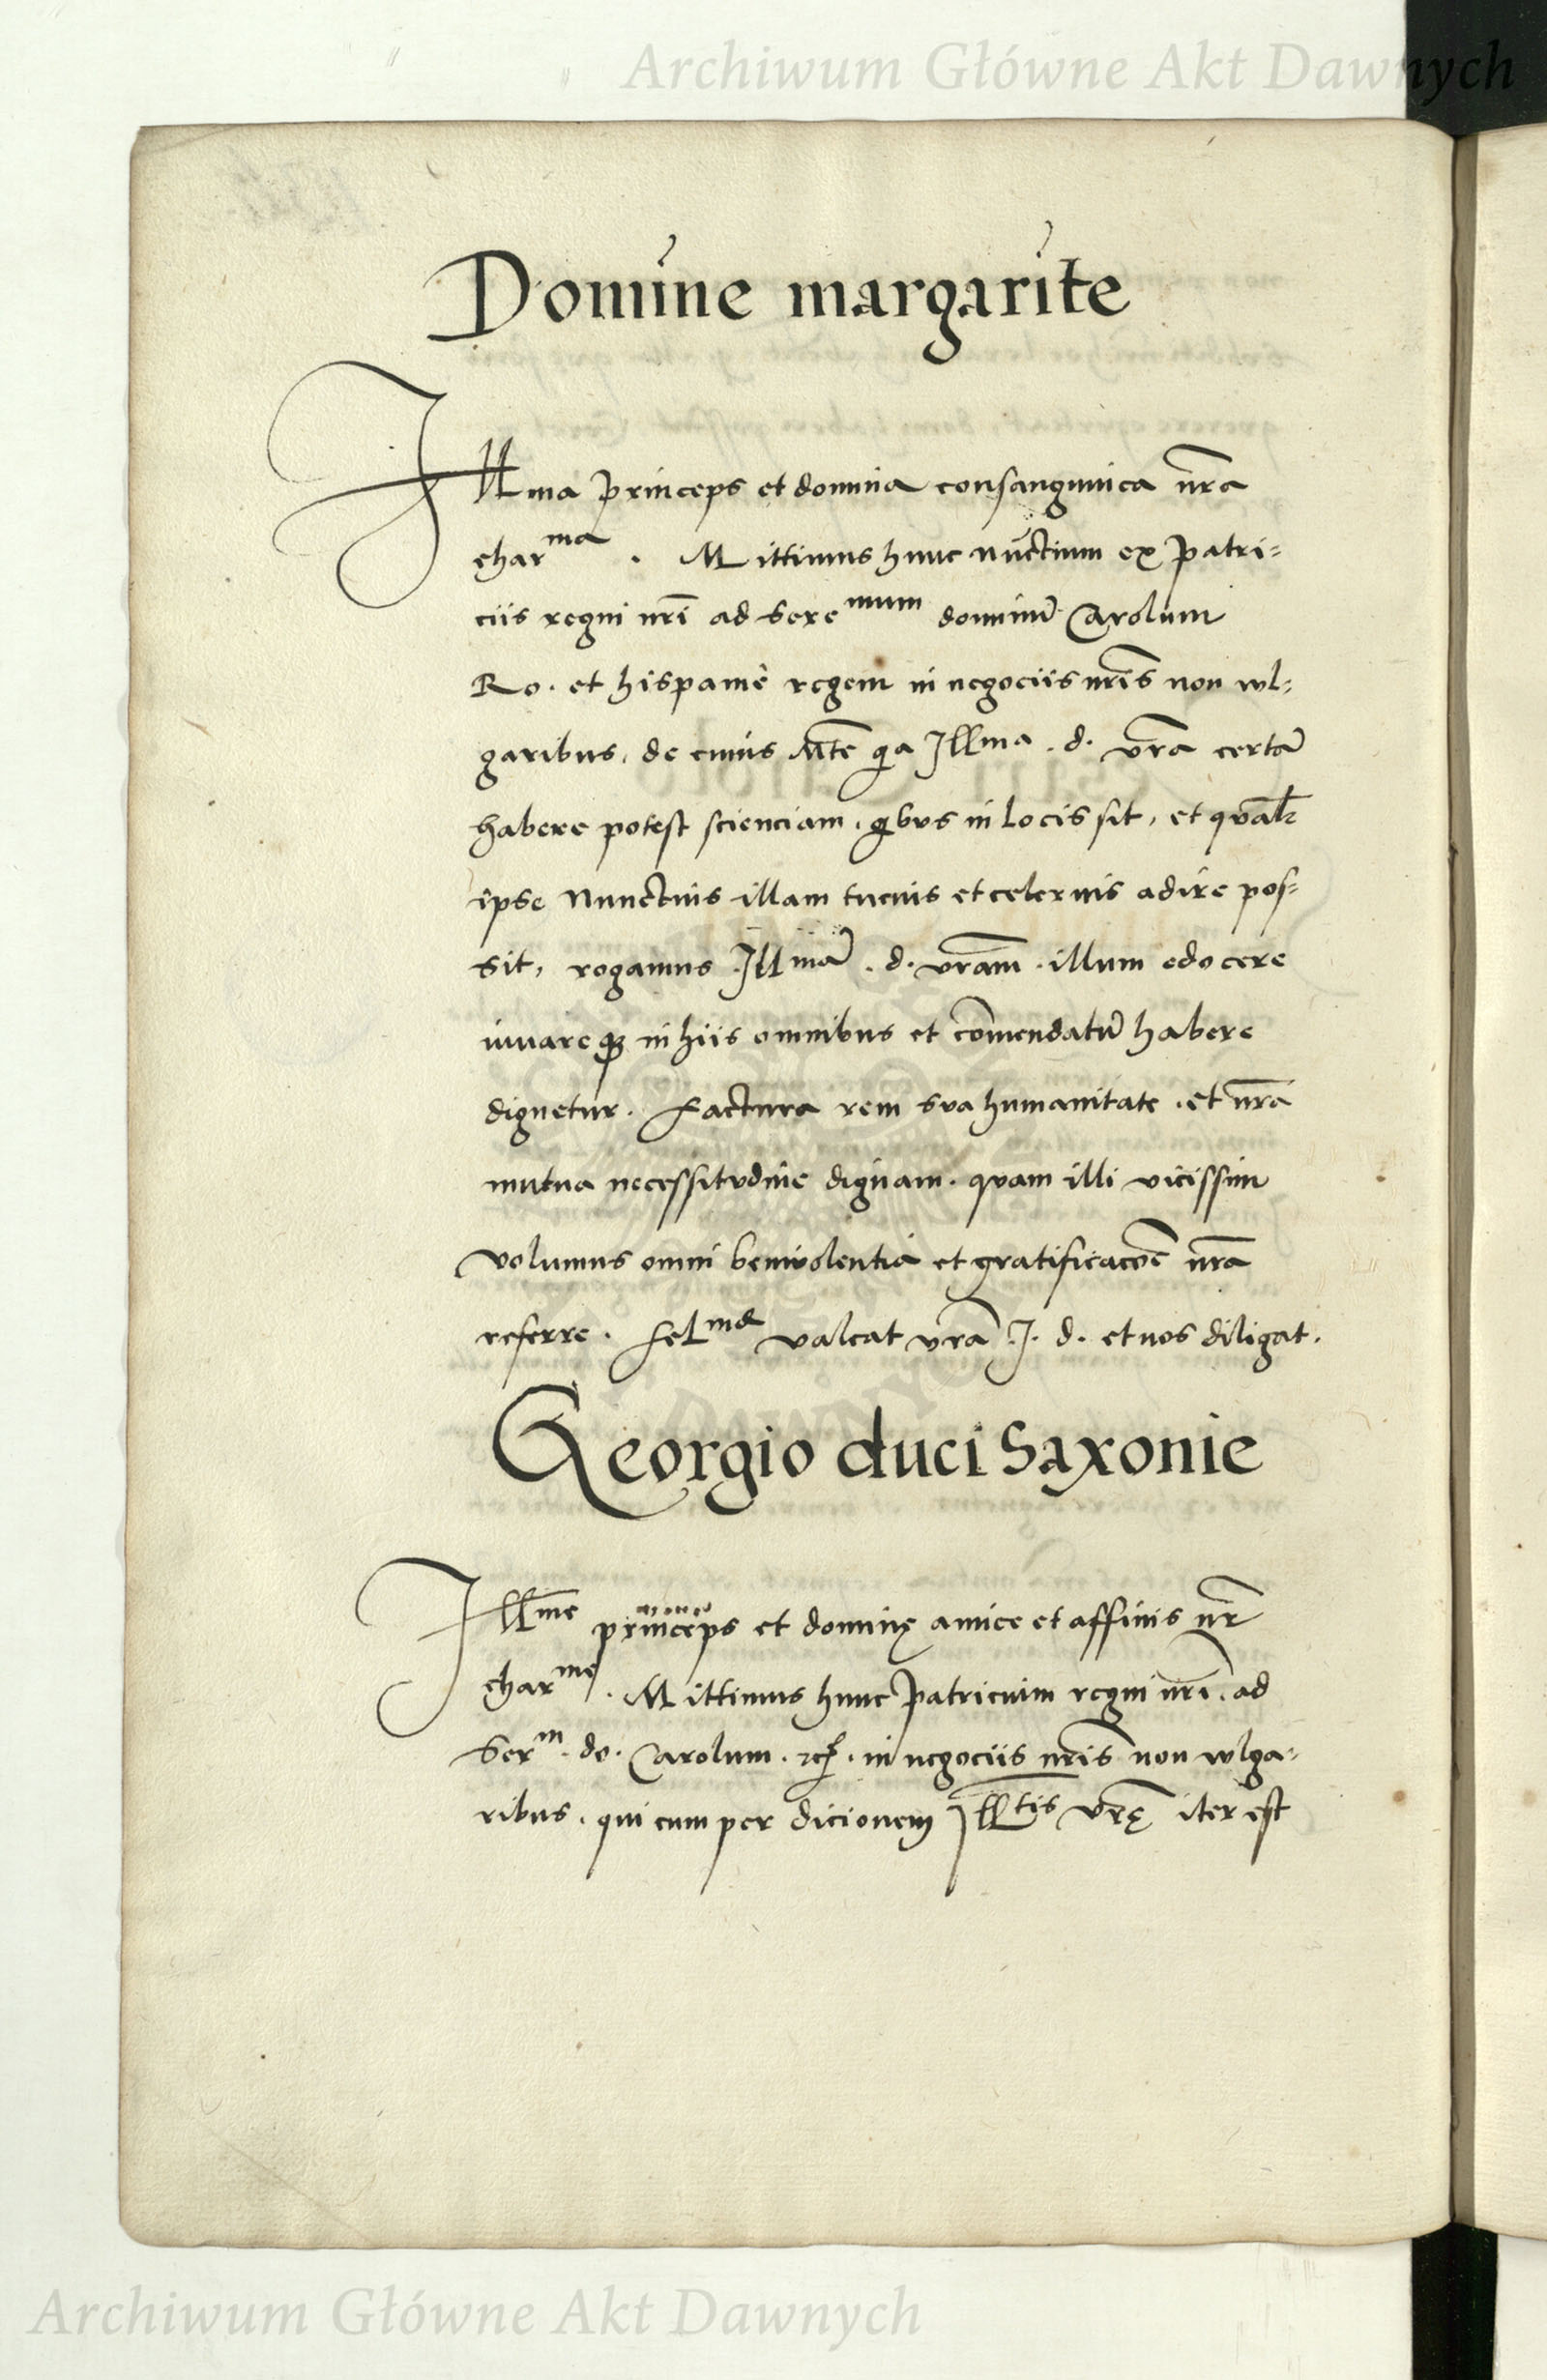 Archiwum Główne Akt Dawnych
Domine margarite
Illma princeps et domina consanguinea nr̄a
char^ma . Mittimus hunc nunctium ex patri=
ciis regni nr̄i ad Sere^mum dominū Carolum
Ro. et hispanie regem in negociis nr̄is non wl=
garibus, de cuius Mte q̄a Illma . d. vr̄a certā
habere potest scienciam, qbus in locis sit, et qualr
ipse Nunctius illam tucius et celerius adire pos=
sit, rogamus Illmā . d. vr̄am . illum edocere
iuuareqz in hiis omnibus et com̄endatū habere
dignetur. Factura rem sua humanitate . et nr̄a
mutua necessitudine dignam . quam illi vicissim
volumus omni beniuolentia et gratificacōe nr̄a
referre . Fel^me valeat vr̄a I. d. et nos diligat.
Georgio duci Saxonie
Ill^me princeps et dominę amice et affinis nr̄
char^me . Mittimus hunc patricium regni nr̄i . ad
Ser^m . do. Carolum . etc . in negociis nr̄is non wlga=
ribus . qui cum per dicionem Ill^tis vr̄ę iter est
Archiwum Główne Akt Dawnych